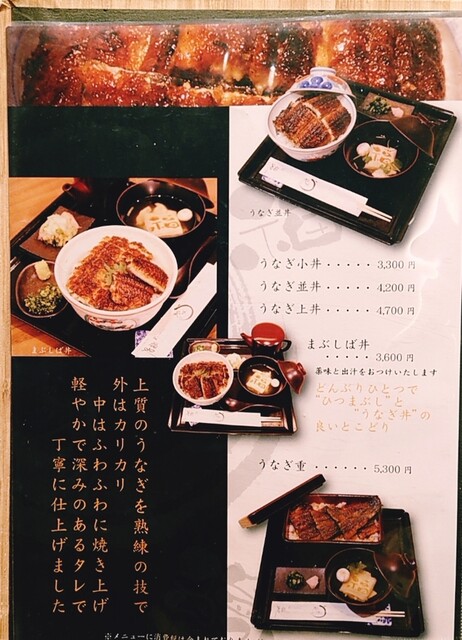 うなぎ並丼
うなぎ小丼・・・・・3,300円
うなぎ並丼・・・・・4,200円
うなぎ上丼・・・・・4,700円
まぶしば丼
・・・・・3,600円
薬味と出汁をおつけいたします
どんぶりひとつで
"ひつまぶし"と
"うなぎ丼"の
良いとこどり
うなぎ重・・・・・・5,300円
まぶしば丼
上質のうなぎを熟練の技で
外はカリカリ
中はふわふわに焼き上げ
軽やかで深みのあるタレで
丁寧に仕上げました
※メニューに消費税は含まれて